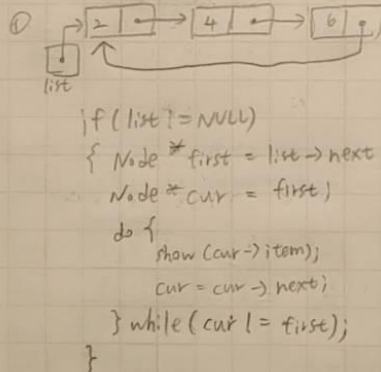 ① 2 4 6
list
if (list != NULL)
{ Node * first = list → next
Node * cur = first;
do {
show (cur → item);
cur = cur → next;
} while (cur != first);
}